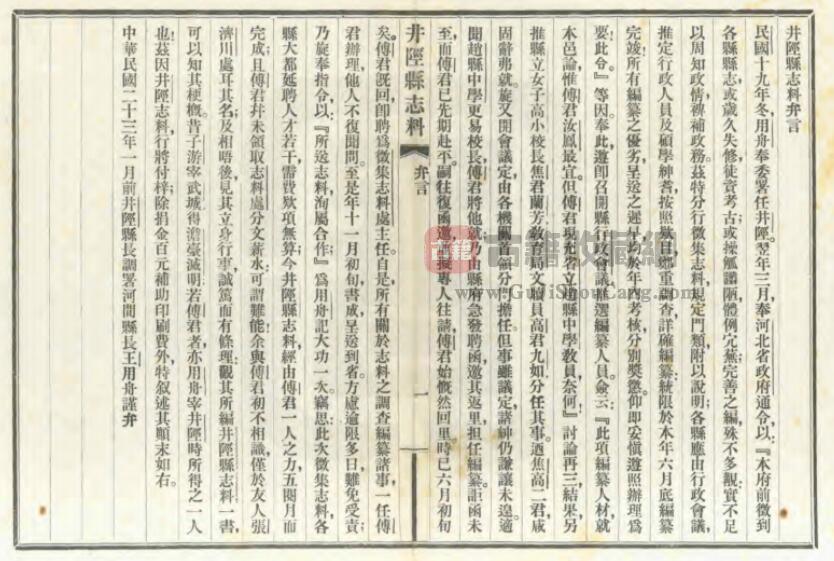 井陘縣志料弁言
民國十九年冬，用舟奉委署任井陘。翌年三月奉河北省政府通令，以『本府前徵到
各縣縣志，或歲久失修，徒資考古，或操觚譾陋，體例冗蕪，完善之編，殊不多覯，實不足
以周知政情，裨補政務。茲特分行徵集志料，規定門類，附以說明，各縣應由行政會議，
推定行政人員及碩學紳耆，按照款目，鄭重調查，詳確編纂，統限於本年六月底編纂
完竣。所有編纂之優劣，呈送之遲早，均於年內考核，分別獎懲。仰即妥愼遵照辦理爲
要。此令。』等因。奉此，遵即召開縣行政會議，推選編纂人員。僉云：『此項編纂人材，就
本邑論，惟傅君汝鳳最宜。但傅君現充省立趙縣中學敎員，奈何』討論再三，結果另
推縣立女子高小校長焦君蘭芳，敎育局文牘員高君九如分任其事。迺焦高二君咸
固辭弗就。旋又開會議定由各機關首領分門擔任。但事雖議定，諸紳仍謙讓未遑。適
聞趙縣中學更易校長，傅君將他就，乃由縣府急發聘函，邀其返里，担任編纂。詎函未
至，而傅君已先期赴平。嗣往復函邀，直接專人往請，傅君始慨然回里，時已六月初旬
矣。傅君旣回，卽聘爲徵集志料處主任。自是所有關於志料之調查編纂諸事，一任傅
君辦理，他人不復聞問。至是年十一月初旬，書成，呈送到省。方慮逾限多日，難免受責，
乃旋奉指令，以『所送志料，洵屬合作』爲用舟記大功一次。竊思此次徵集志料，各
縣大都延聘人才若干，需費欵項無算。今井陘縣志料，經由傅君一人之力，五閱月而
完成，且傅君幷未領取志料處分文薪水，可謂難能。余與傅君初不相識，僅於友人張
濟川處耳其名，及相晤後，見其立身行事，誠篤而有條理，觀其所編井陘縣志料一書，
可以知其梗槪。昔子游宰武城，得澹臺滅明，若傅君者，亦用舟宰井陘時所得之一人
也。茲因井陘志料，行將付梓，除捐金百元，補助印刷費外，特叙述其顚末如右。
中華民國二十三年一月前井陘縣長調署河間縣長王用舟謹弁
井陘縣志料
弁言
一
古籍
古籍收藏網
www.GuJiShouCang.com